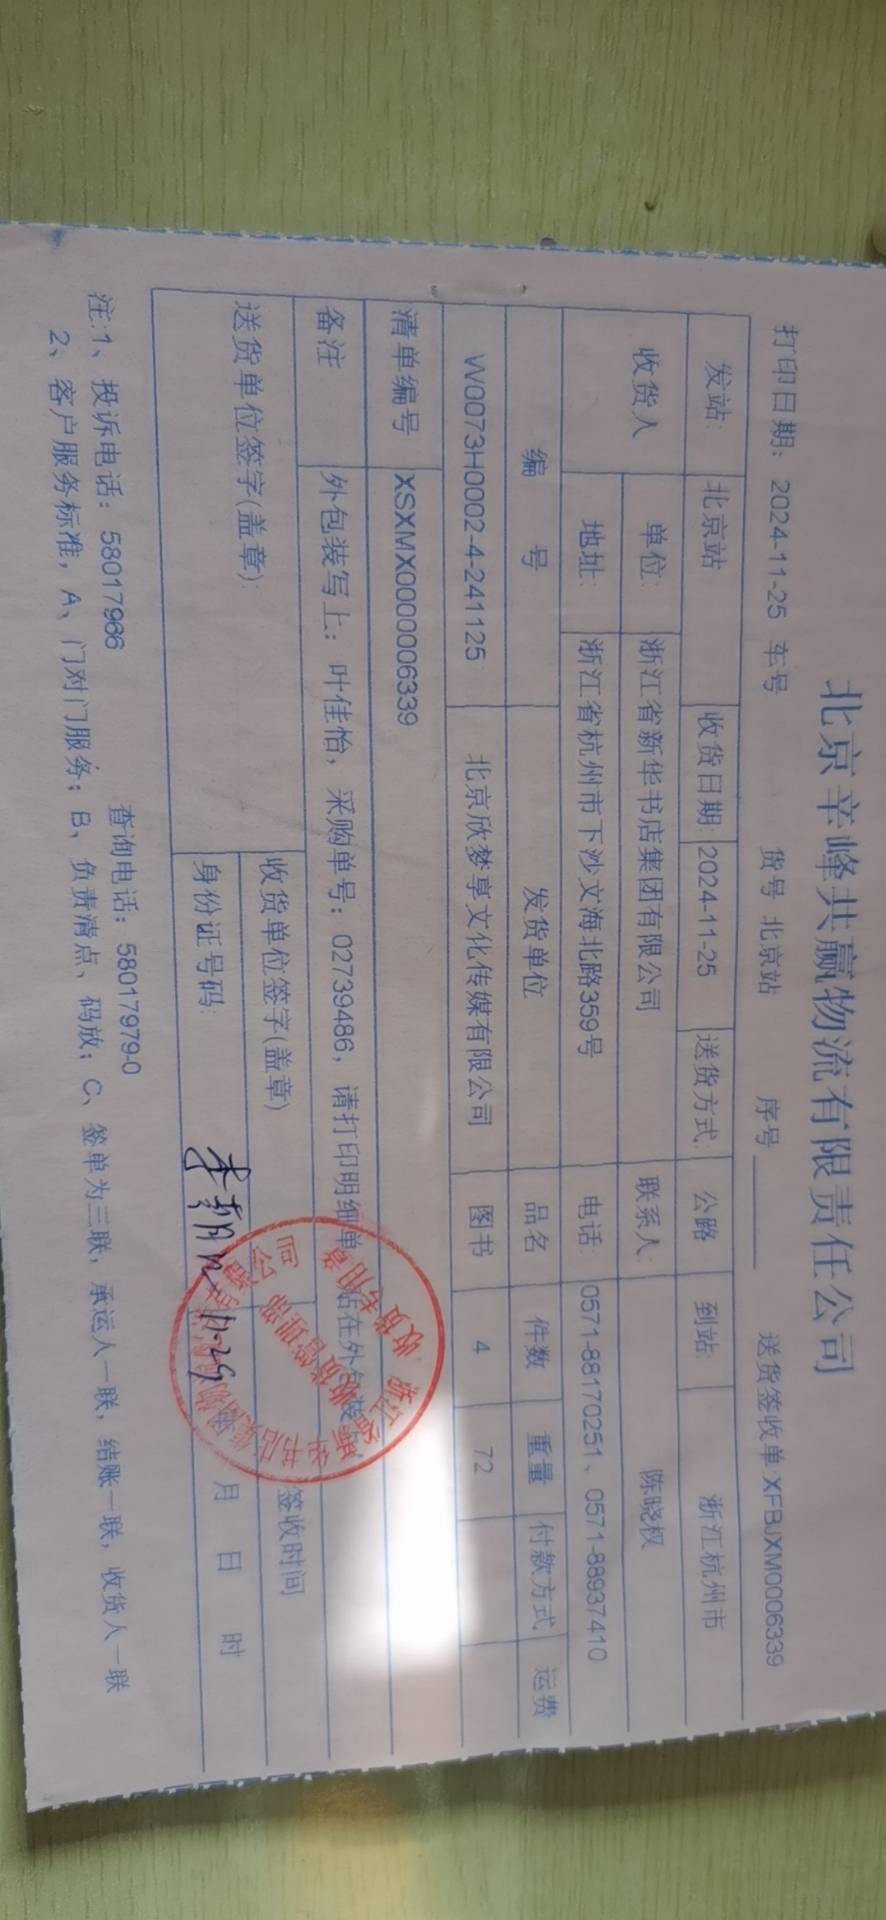 北京辛峰共赢物流有限责任公司
打印日期: 2024-11-25 车号 货号 北京站 序号 送货签收单:XFBJXM0006339
发站: 北京站 收货日期: 2024-11-25 送货方式: 公路 到站: 浙江杭州市
收货人 单位: 浙江省新华书店集团有限公司 联系人: 陈晓权
地址: 浙江省杭州市下沙文海北路359号 电话: 0571-88170251、0571-88937410
编 号 发货单位 品名 件数 重量 付款方式 运费
W0073H0002-4-241125 北京欣梦享文化传媒有限公司 图书 4 72
清单编号 XSXMX0000006339
备注 外包装写上: 叶佳怡, 采购单号: 02739486, 请打印明细单 贴在外包装
送货单位签字(盖章): 收货单位签字(盖章) 签收时间
身份证号码: 11-29 月 日 时
收货管理部
收货专用章
注:1、投诉电话: 58017966 查询电话: 58017979-0
2、客户服务标准, A、门对门服务; B、负责清点、码放; C、签单为三联, 承运人一联, 结账一联, 收货人一联